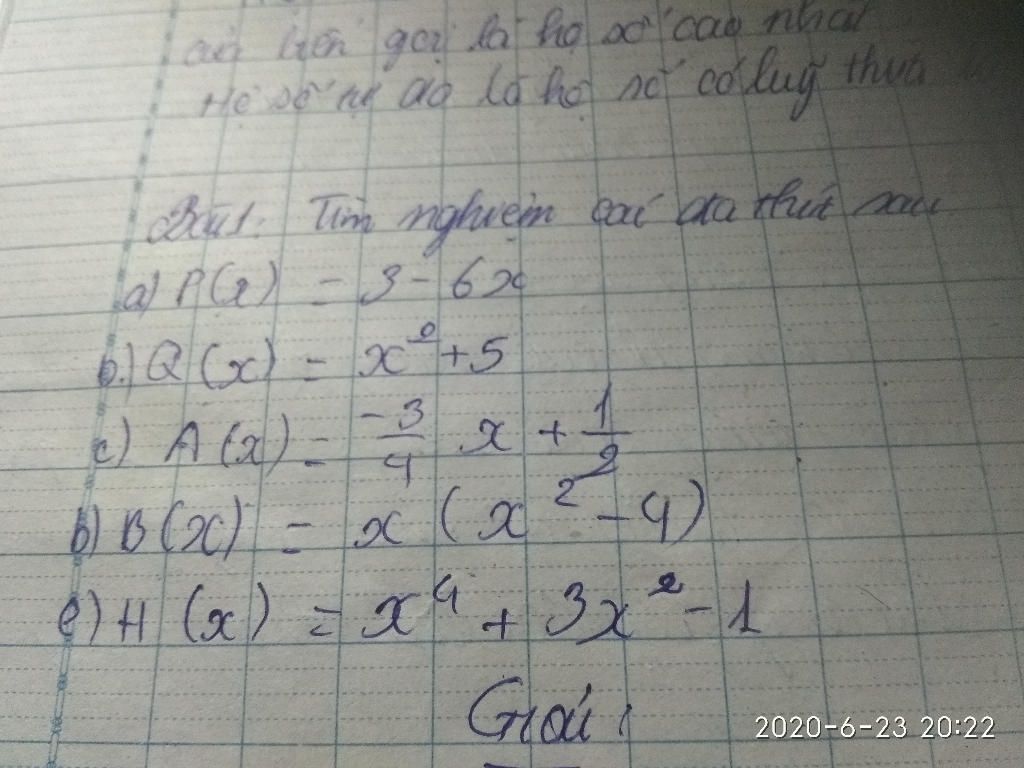 gọi là hệ số cao nhất
Hệ số là hệ số có luỹ thừa
Bài 1: Tìm nghiệm các đa thức sau
a) P(x) = 3 - 6x
b.) Q(x) = x² + 5
c) A(x) = -3/4 x + 1/2
b) B(x) = x (x² - 4)
e) H(x) = x⁴ + 3x² - 1
Giải
2020-6-23 20:22